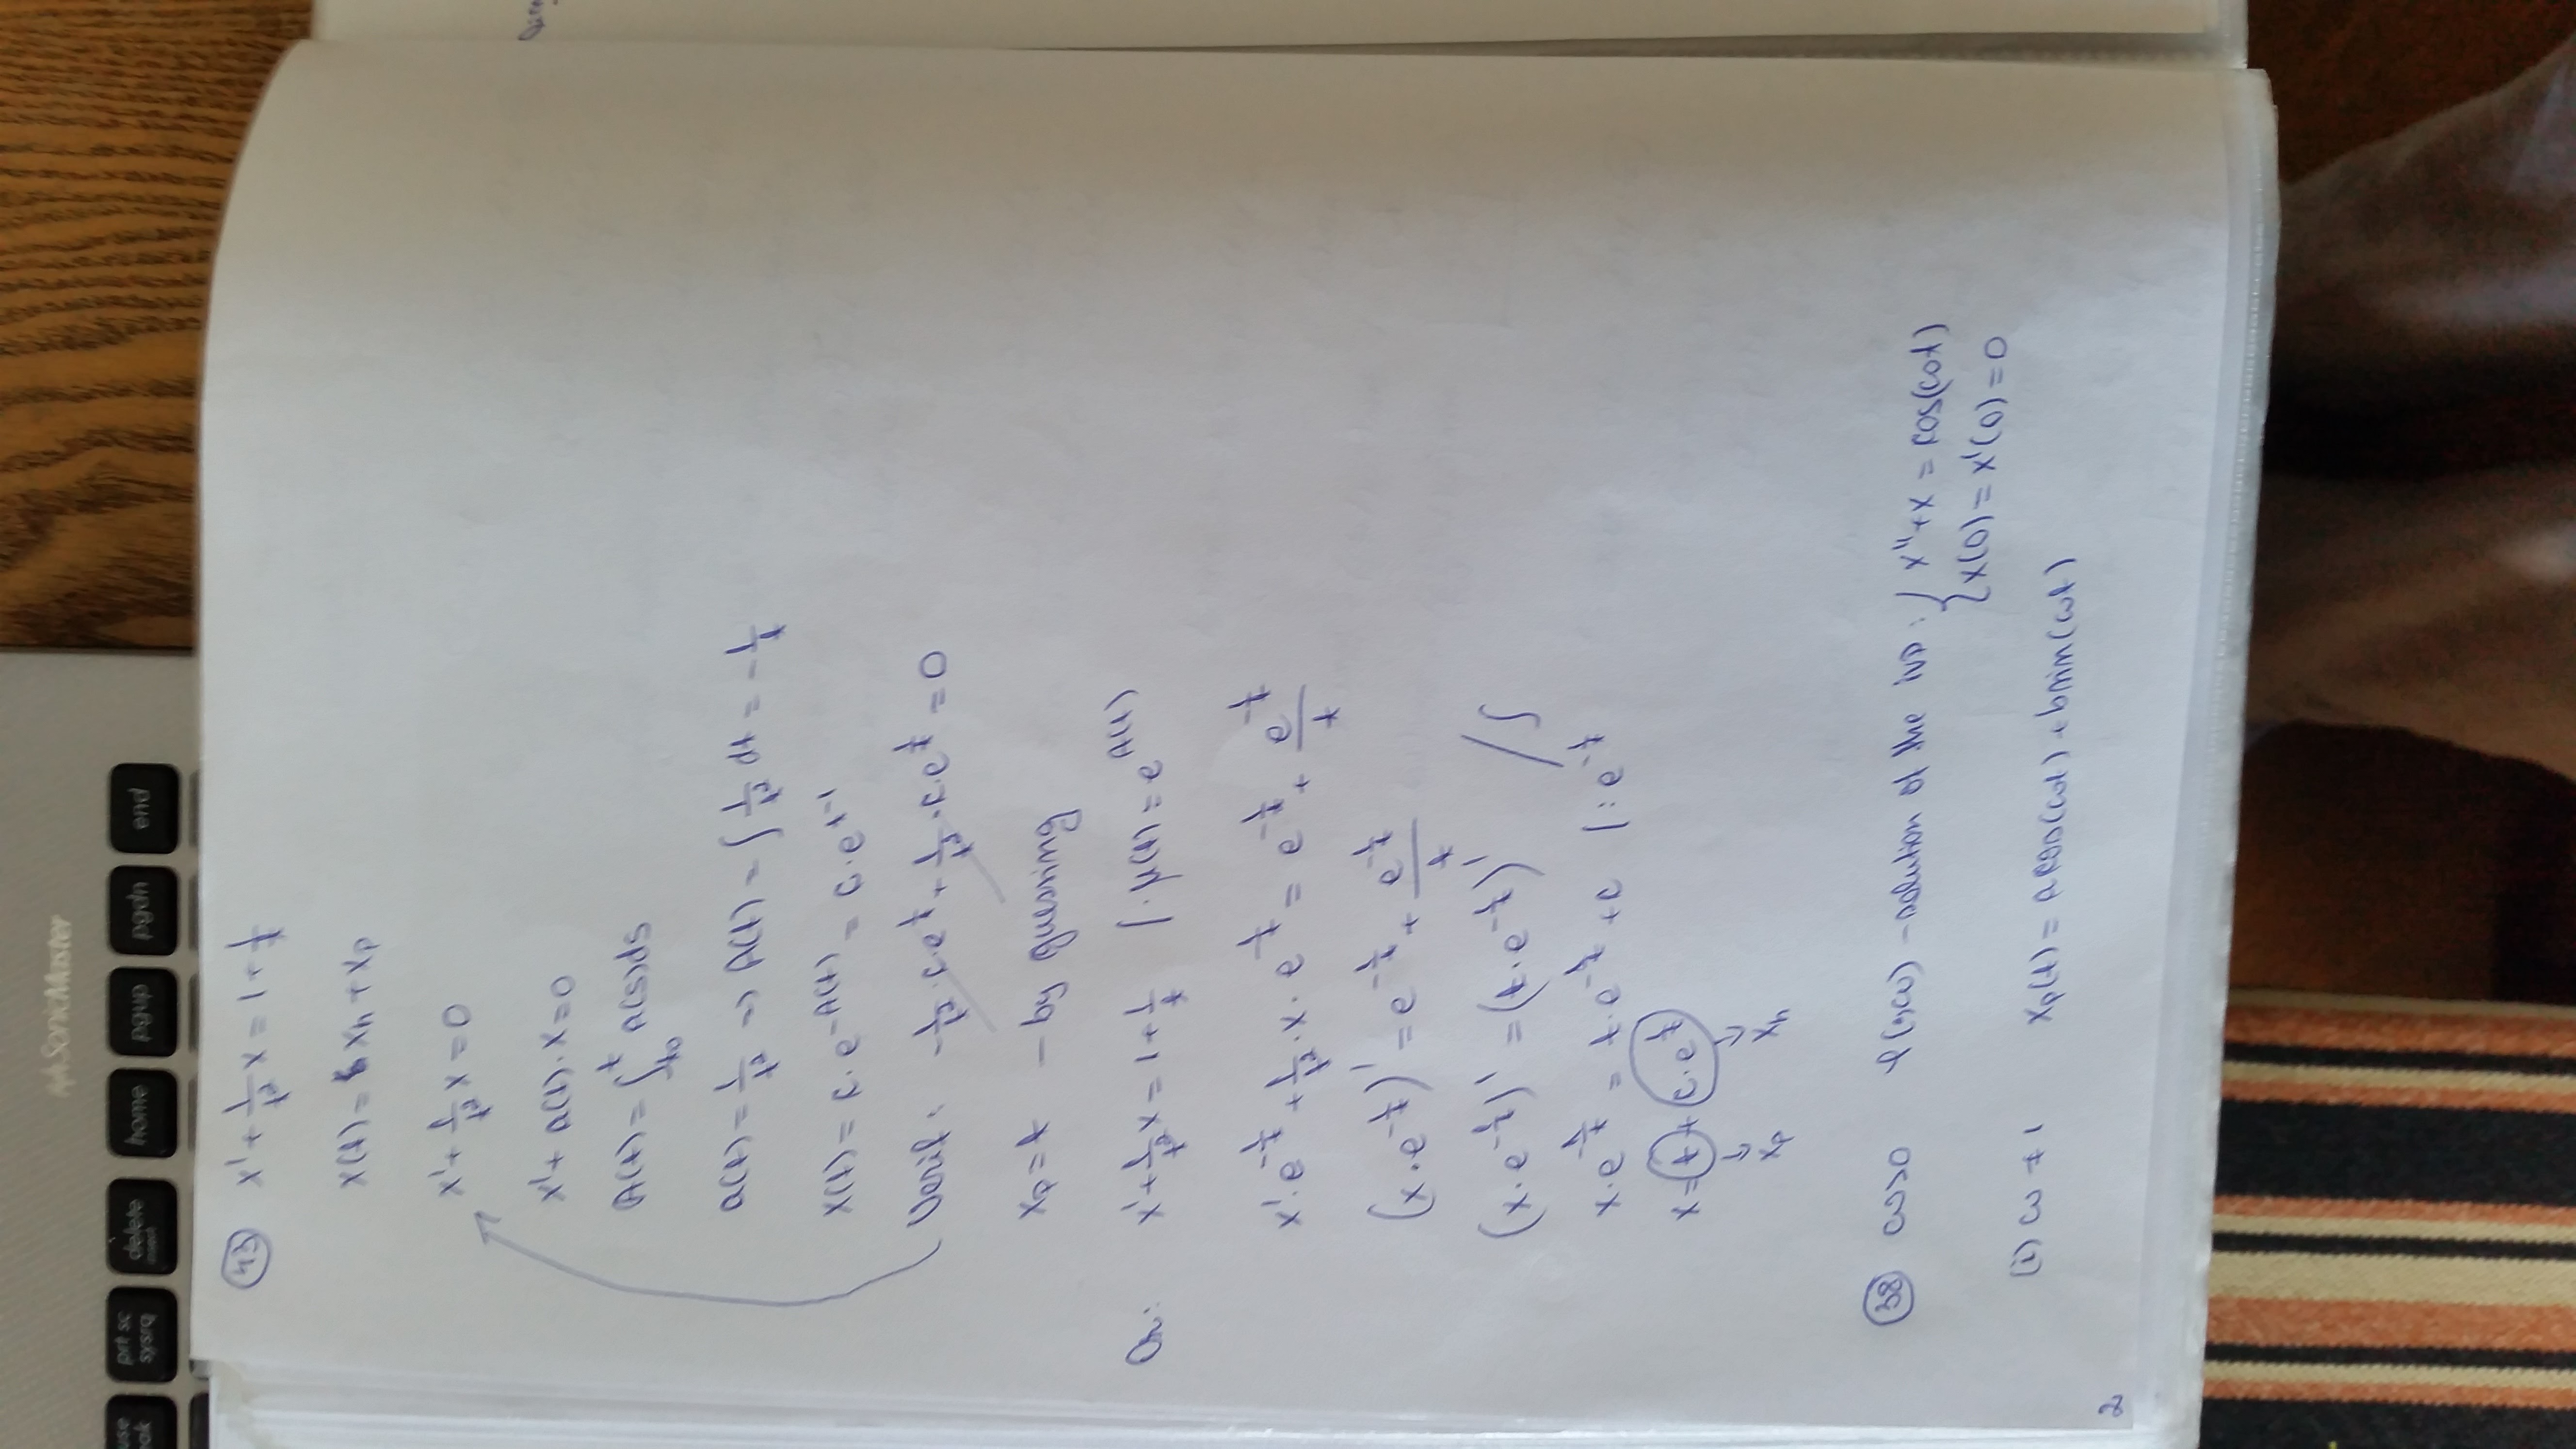 SonicMaster
prt sc
sysrq
delete
insert
home
pgup
pgdn
end
43 x' + 1/t² x = 1 + 1/t
x(t) = xh + xp
x' + 1/t² x = 0
x' + a(t)·x = 0
A(t) = ∫_{t0}^{t} a(s)ds
a(t) = 1/t² => A(t) = ∫ 1/t² dt = -1/t
x(t) = c·e^{-A(t)} = c·e^{t^{-1}}
Verif: -1/t²·c·e^{1/t} + 1/t²·c·e^{1/t} = 0
xp = t – by guessing
Or: x' + 1/t² x = 1 + 1/t /·μ(t) = e^{A(t)}
x'·e^{-1/t} + 1/t²·x·e^{-1/t} = e^{-1/t} + e^{-1/t}/t
(x·e^{-1/t})' = e^{-1/t} + e^{-1/t}/t
(x·e^{-1/t})' = (t·e^{-1/t})' /∫
x·e^{-1/t} = t·e^{-1/t} + c /:e^{-1/t}
x = t + c·e^{1/t}
↓ ↓
xp xh
38 ω>0 φ(·,ω) – solution of the IVP: { x'' + x = cos(ωt)
x(0) = x'(0) = 0
(i) ω ≠ 1 xp(t) = a cos(ωt) + b sin(ωt)
2